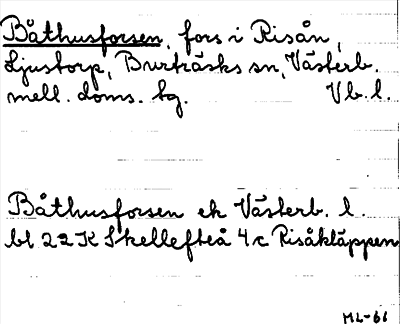 Båthusforsen, fors i Risån,
Ljustorp, Burträsks sn, Västerb.
mell. doms. tg. Vb. l.
Båthusforsen ek Västerb. l.
bl 22K Skellefteå 4c Risåkläppen
ML-61